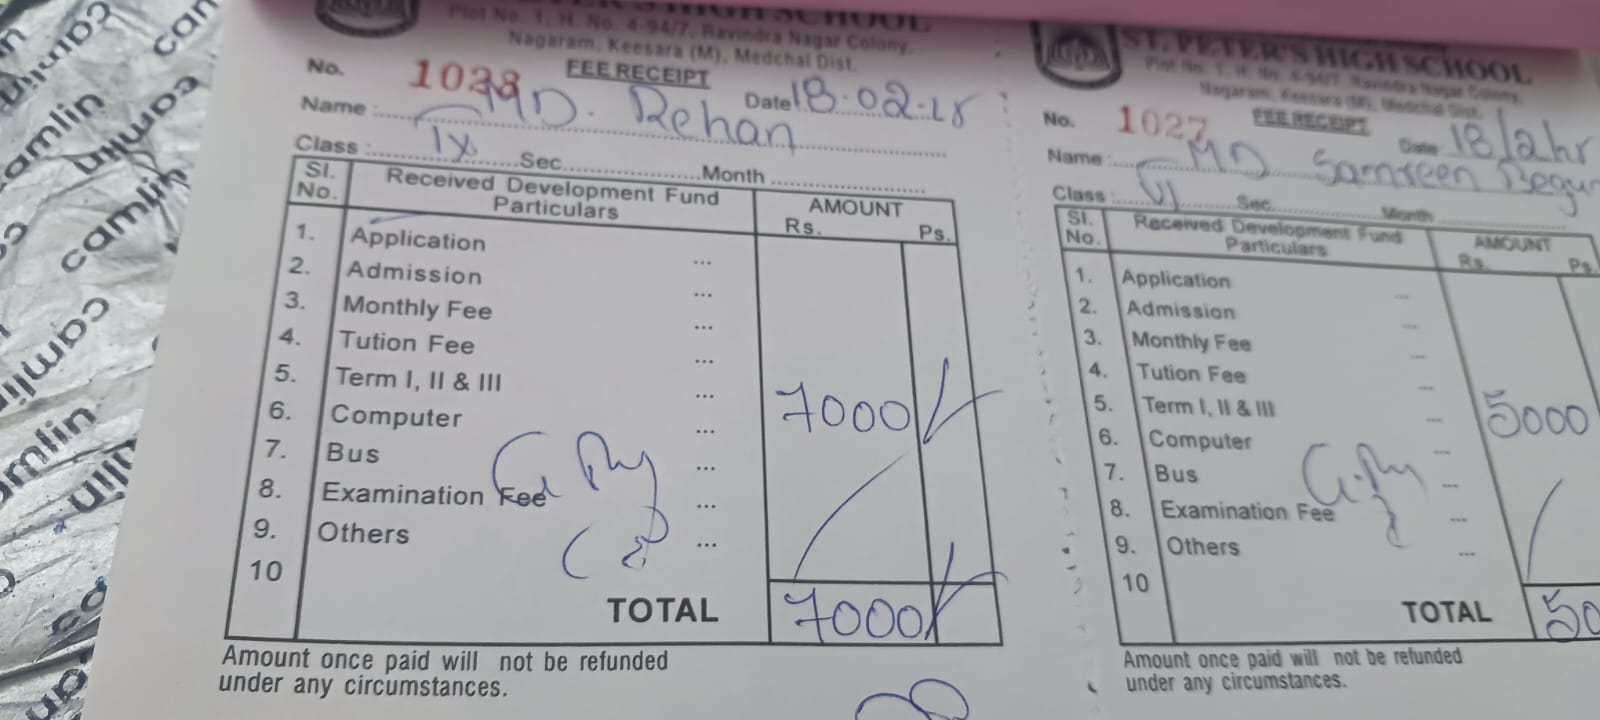 HIGH SCHOOL
Plot No. 1, H. No. 4-94/7, Ravindra Nagar Colony,
Nagaram, Keesara (M), Medchal Dist.
FEE RECEIPT
No. 1028
Date 18.02.25
Name : MD. Rehan
Class : IX Sec. Month
Sl. No. Received Development Fund Particulars AMOUNT Rs. Ps.
1. Application ...
2. Admission ...
3. Monthly Fee ...
4. Tution Fee ...
5. Term I, II & III ... 7000/-
6. Computer ...
7. Bus ...
8. Examination Fee ...
9. Others ...
10
TOTAL 7000/-
Amount once paid will not be refunded
under any circumstances.
ST. PETER'S HIGH SCHOOL
Plot No. 1, H. No. 4-94/7, Ravindra Nagar Colony,
Nagaram, Keesara (M), Medchal Dist.
FEE RECEIPT
No. 1027
Date 18/2/
Name : MD Samreen Begu
Class : VI Sec. Month
Sl. No. Received Development Fund Particulars AMOUNT Rs. Ps.
1. Application ...
2. Admission ...
3. Monthly Fee ...
4. Tution Fee ...
5. Term I, II & III ... 5000
6. Computer ...
7. Bus ...
8. Examination Fee ...
9. Others ...
10
TOTAL 50
Amount once paid will not be refunded
under any circumstances.
camlin
camlin
camlin
camlin
camlin